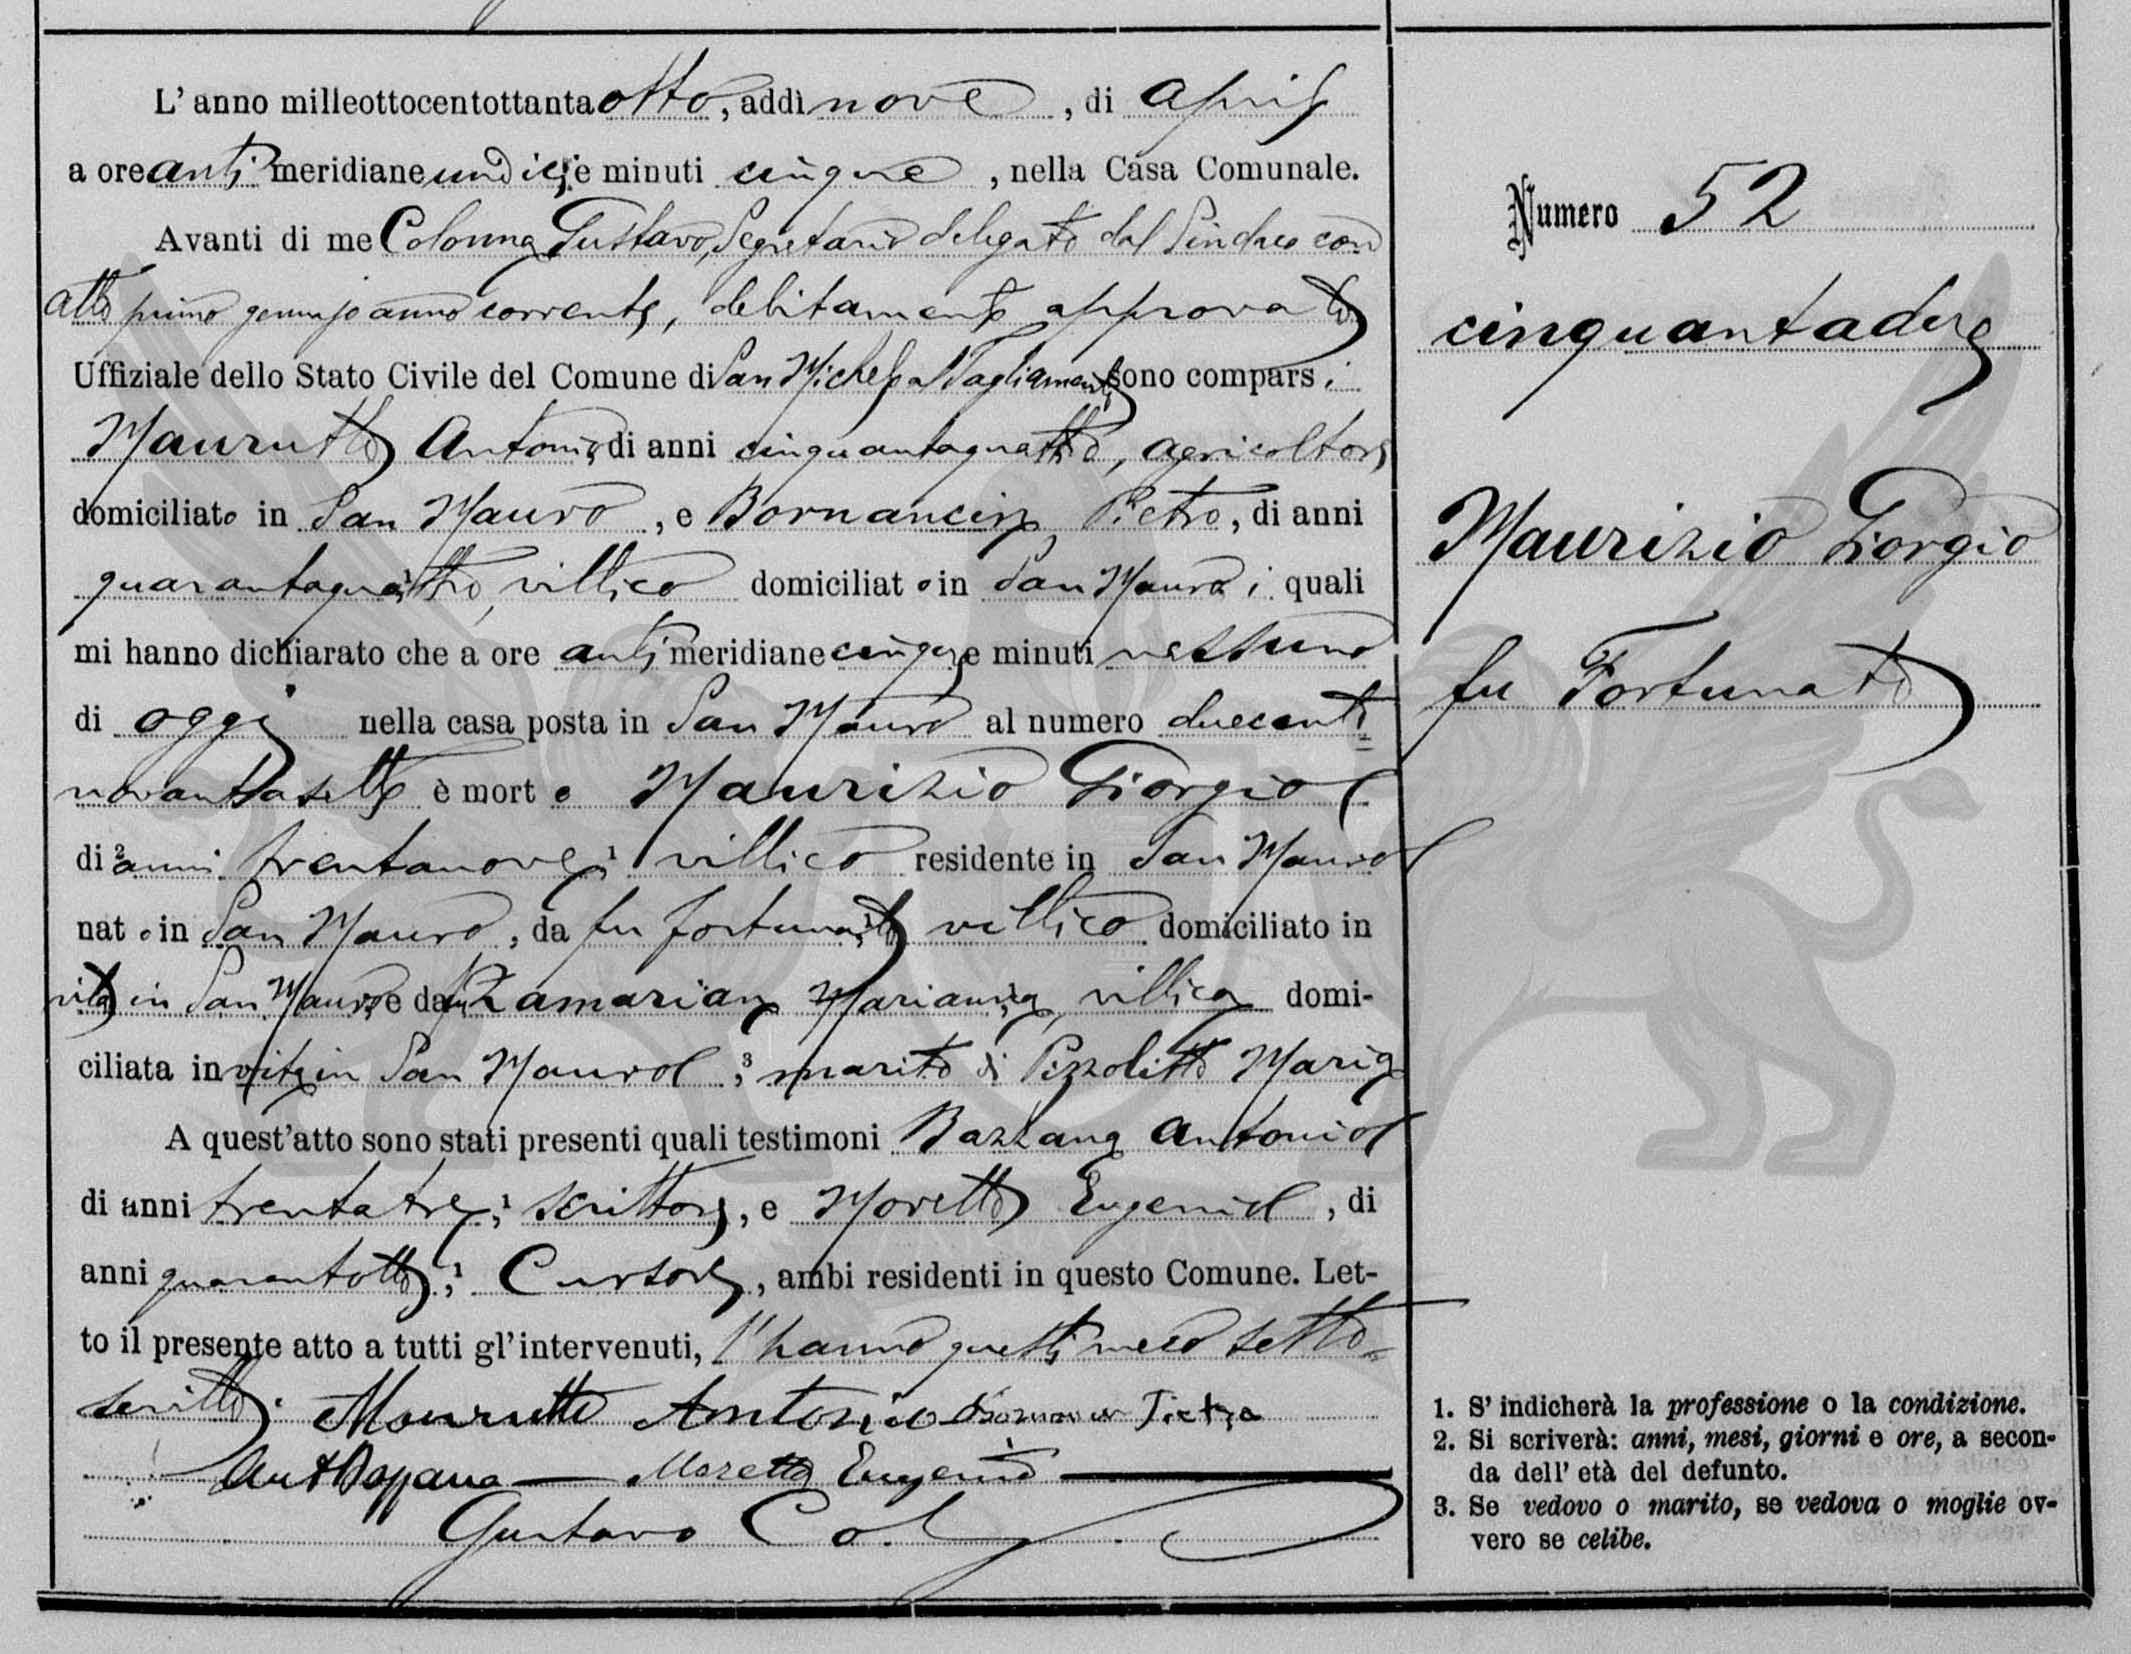 L' anno milleottocentottantaotto, addì nove, di Aprile
a ore antimeridiane undici e minuti cinque, nella Casa Comunale.
Avanti di me Colonna Gustavo, Segretario delegato dal Sindaco con
atto primo gennajo anno corrente, debitamente approvato
Uffiziale dello Stato Civile del Comune di San Michele al Tagliamento sono comparsi
Maurutto Antonio di anni cinquantaquattro, agricoltore
domiciliato in San Mauro, e Bornancin Pietro, di anni
quarantaquattro, villico domiciliato in San Mauro i quali
mi hanno dichiarato che a ore antimeridiane cinque e minuti nessuno
di oggi nella casa posta in San Mauro al numero duecento
novantasette è morto Maurizio Giorgio
di ² anni trentanove, ¹ villico residente in San Mauro
nato in San Mauro, da fu Fortunato villico domiciliato in
vita in San Mauro, e da fu Zamarian Marianna, villica domi-
ciliata in vita in San Mauro, ³ marito di Pizzolitto Maria
A quest'atto sono stati presenti quali testimoni Bazzana Antonio
di anni trentatre, ¹ scrittore, e Moretto Eugenio, di
anni quarantotto, ¹ Cursore, ambi residenti in questo Comune. Let-
to il presente atto a tutti gl'intervenuti, l'hanno questi meco sotto=
scritto. Maurutto Antonio Pietro
Ant Bazzana — Moretto Eugenio
Gustavo Col
Numero 52
cinquantadue
Maurizio Giorgio
fu Fortunato
1. S' indicherà la professione o la condizione.
2. Si scriverà: anni, mesi, giorni e ore, a secon-
da dell' età del defunto.
3. Se vedovo o marito, se vedova o moglie ov-
vero se celibe.